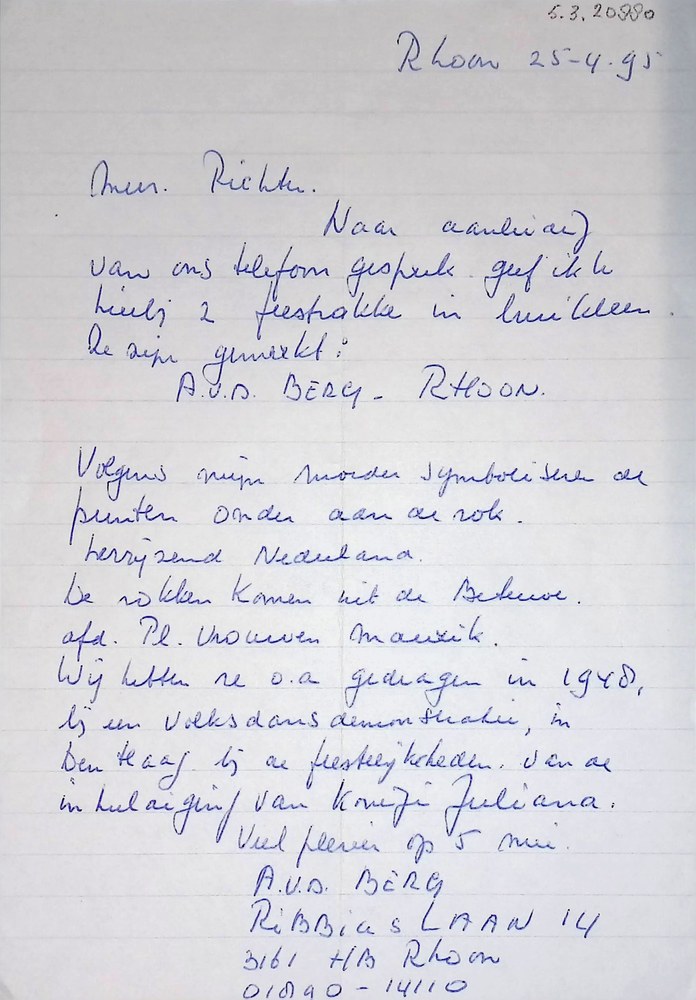 5.3.20880
Rhoon 25-4-95
Mevr. Richter.
Naar aanleiding
van ons telefoon gesprek geef ik U
hierbij 2 feestrokke in bruikleen.
Ze zijn gemerkt:
A.v.d. BERG - RHOON.
Volgens mijn moeder symboliseren de
punten onder aan de rok.
herrijzend Nederland.
De rokken komen uit de Betuwe.
afd. Pl. Vrouwen Maurik.
Wij hebben ze o.a gedragen in 1948,
bij een volksdansdemonstratie, in
Den Haag bij de feestelijkheden van de
inhuldiging van Konigin Juliana.
Veel plezier op 5 mei.
A.v.d. BERG
RiBBius LAAN 14
3161 HB Rhoon
01890-14110